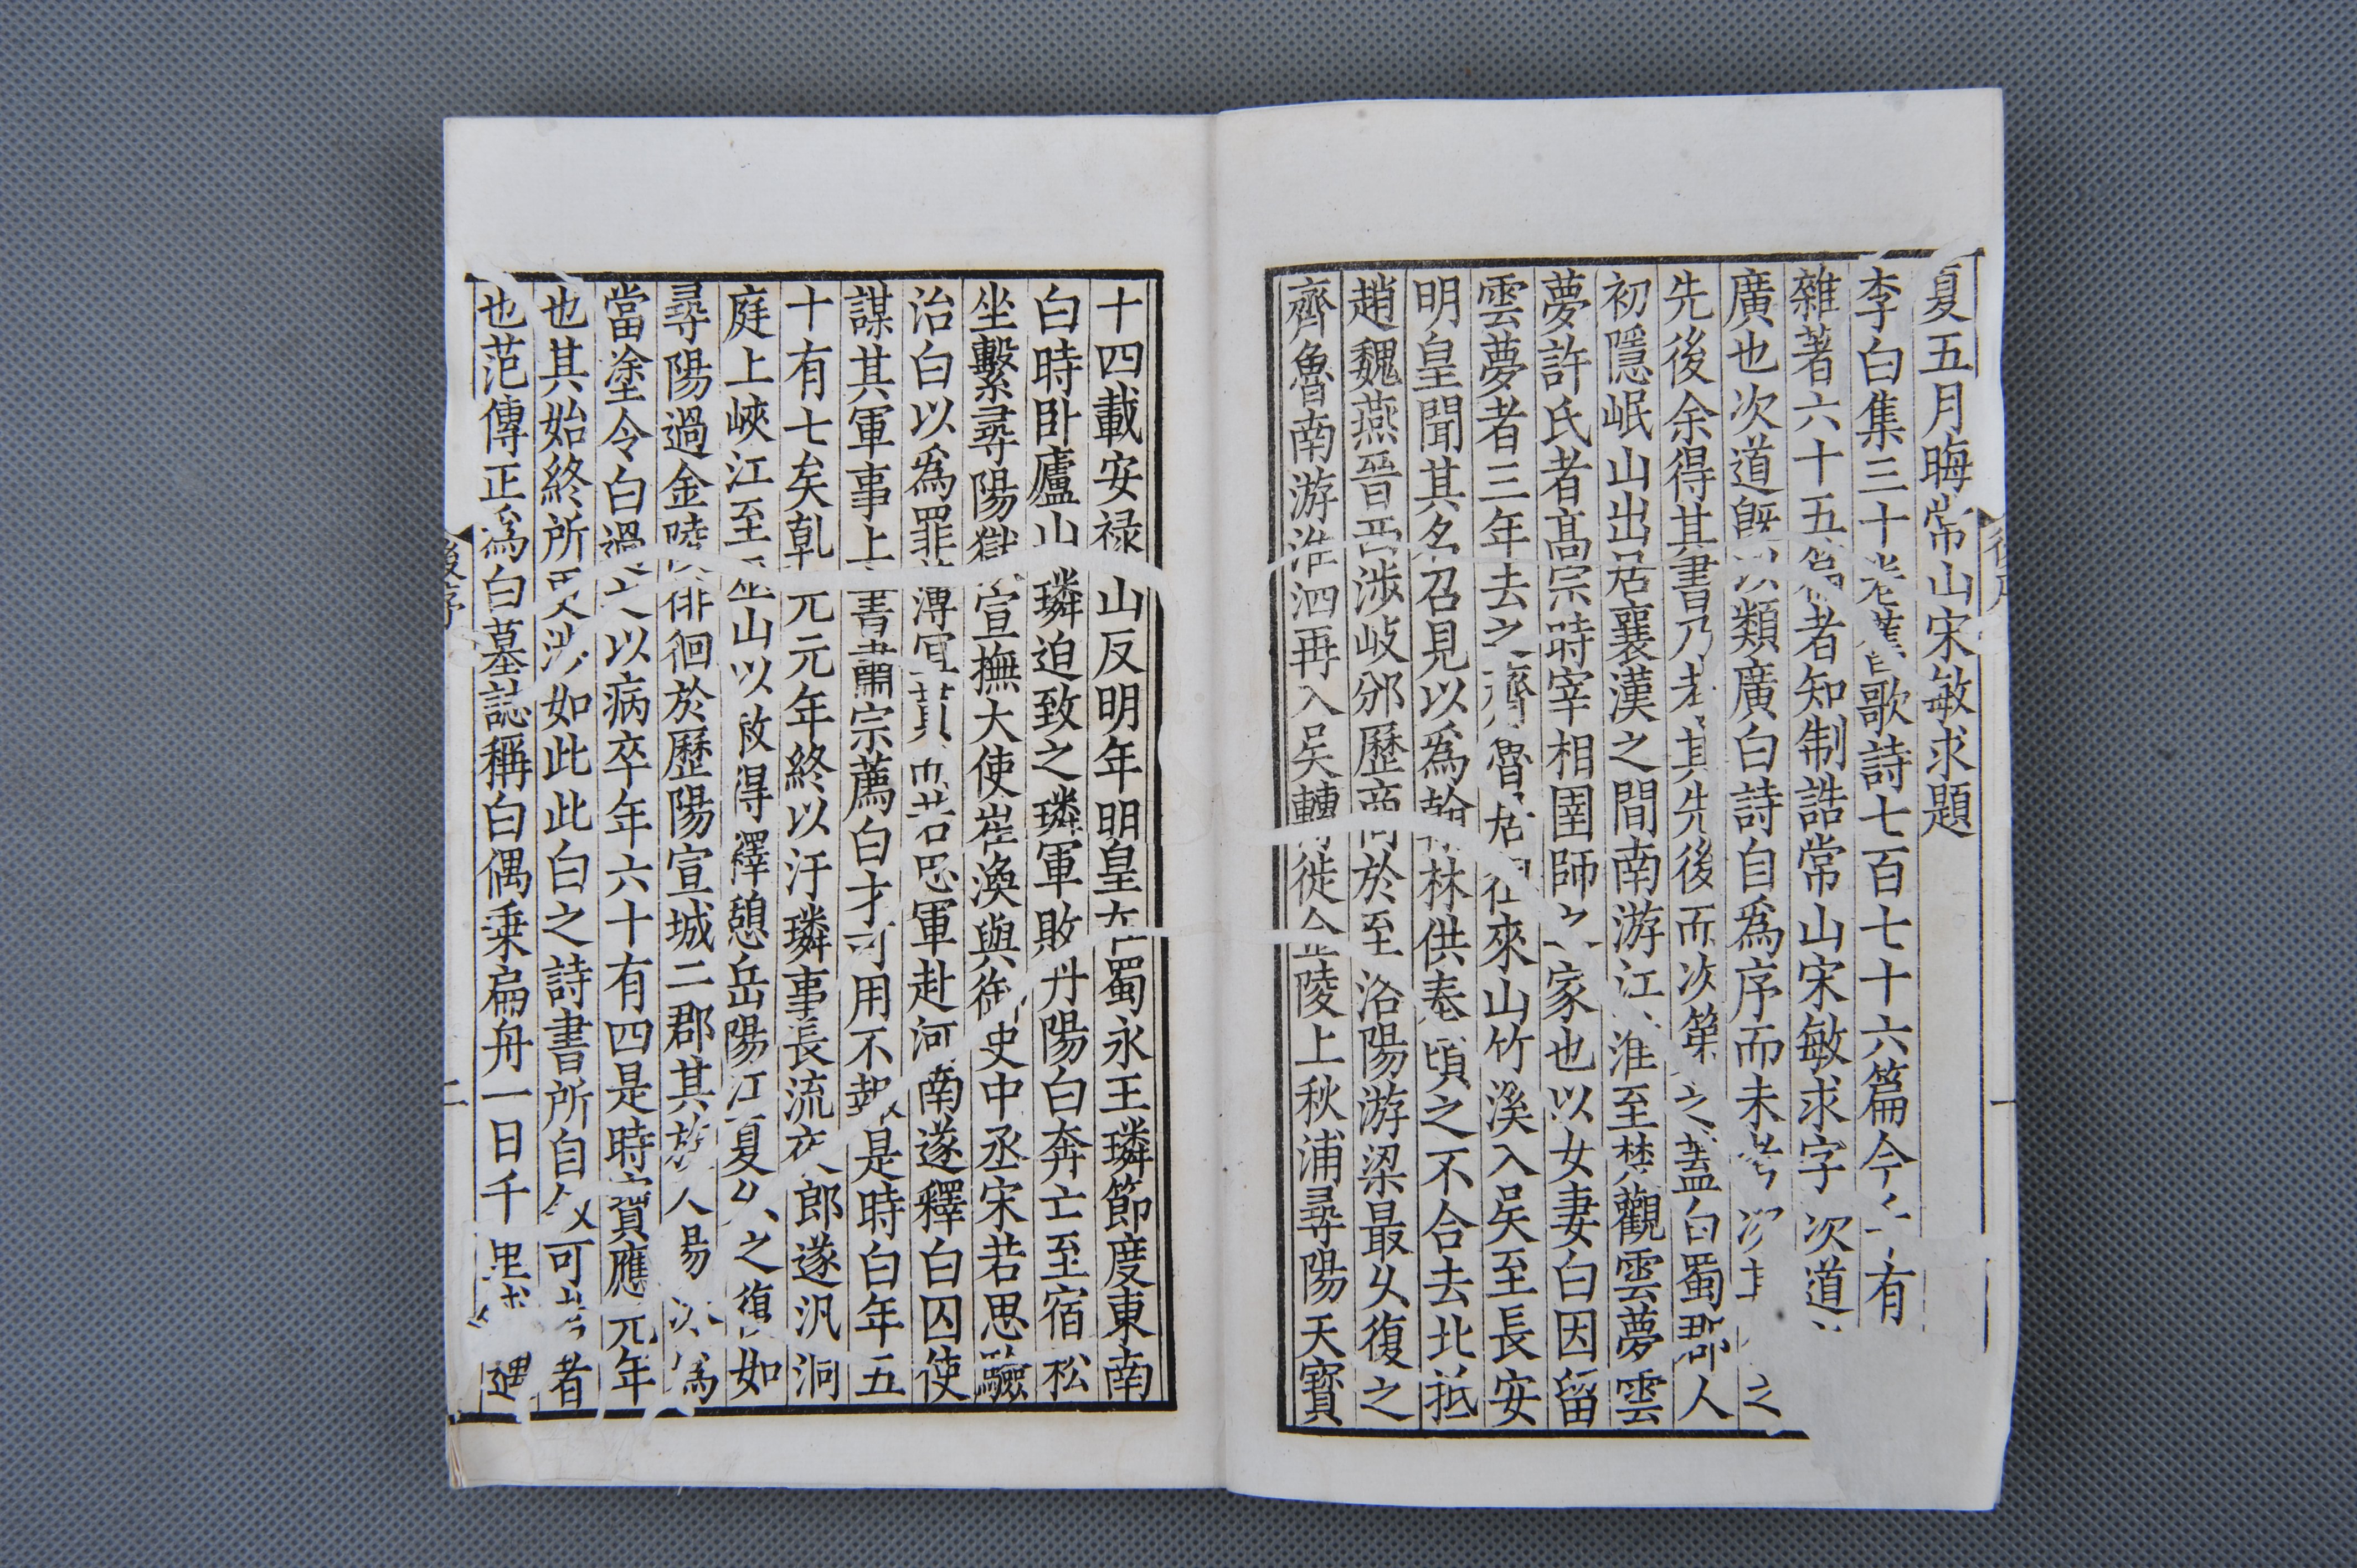 夏五月晦常山宋敏求題
李白集三十卷舊歌詩七百七十六篇今千有
雜著六十五篇者知制誥常山宋敏求字次道
廣也次道旣以類廣白詩自爲序而未考次其之
先後余得其書乃考其先後而次第之蓋白蜀郡人
初隱岷山出居襄漢之間南游江淮至楚觀雲夢雲
夢許氏者高宗時宰相圉師之家也以女妻白因留
雲夢者三年去之齊魯居徂徠山竹溪入吳至長安
明皇聞其名召見以爲翰林供奉頃之不合去北抵
趙魏燕晉西涉岐邠歷商於至洛陽游梁最久復之
齊魯南游淮泗再入吳轉徙金陵上秋浦尋陽天寶
後序
一
十四載安祿山反明年明皇在蜀永王璘節度東南
白時卧廬山璘迫致之璘軍敗丹陽白奔亡至宿松
坐繫尋陽獄宣撫大使崔渙與御史中丞宋若思驗
治白以爲罪薄宜貰而若思軍赴河南遂釋白囚使
謀其軍事上書肅宗薦白才可用不報是時白年五
十有七矣乹元元年終以汙璘事長流夜郎遂汎洞
庭上峽江至巫山以赦得釋憩岳陽江夏久之復如
尋陽過金陵徘徊於歷陽宣城二郡其族人陽冰爲
當塗令白過之以病卒年六十有四是時寶應元年
也其始終所更涉如此此白之詩書所自敘可考者
也范傳正爲白墓誌稱白偶乗扁舟一日千里或遇
後序
二